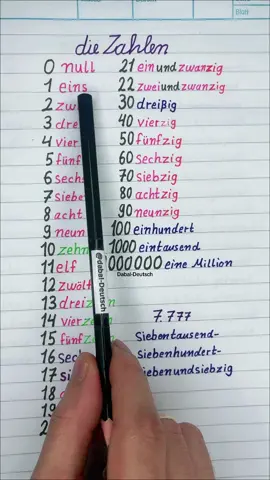 die Zahlen
0 null
1 eins
2 zw
3 dre
4 vier
5 fünf
6 sech
7 siebe
8 acht
9 neun
10 zehn
11 elf
12 zwölf
13 dreizehn
14 vierzehn
15 fünfzehn
16 sech
17 si
18
19
2
21 einundzwanzig
22 zweiundzwanzig
30 dreißig
40 vierzig
50 fünfzig
60 sechzig
70 siebzig
80 achtzig
90 neunzig
100 einhundert
1000 eintausend
000000 eine Million
7.777
Siebentausend-
Siebenhundert-
siebenundsiebzig
@dabal-Deutsch
Dabal-Deutsch